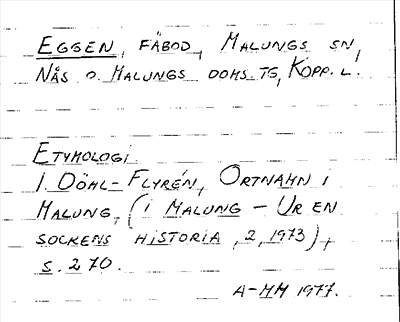 EGGEN, FÄBOD, MALUNGS SN,
NÅS O. MALUNGS DOMS.TG, KOPP. L.
ETYMOLOGI
I. DÖHL-FLYRÉN, ORTNAMN I
MALUNG, (I MALUNG – UR EN
SOCKENS HISTORIA, 2, 1973),
S. 270.
A-MM 1977.